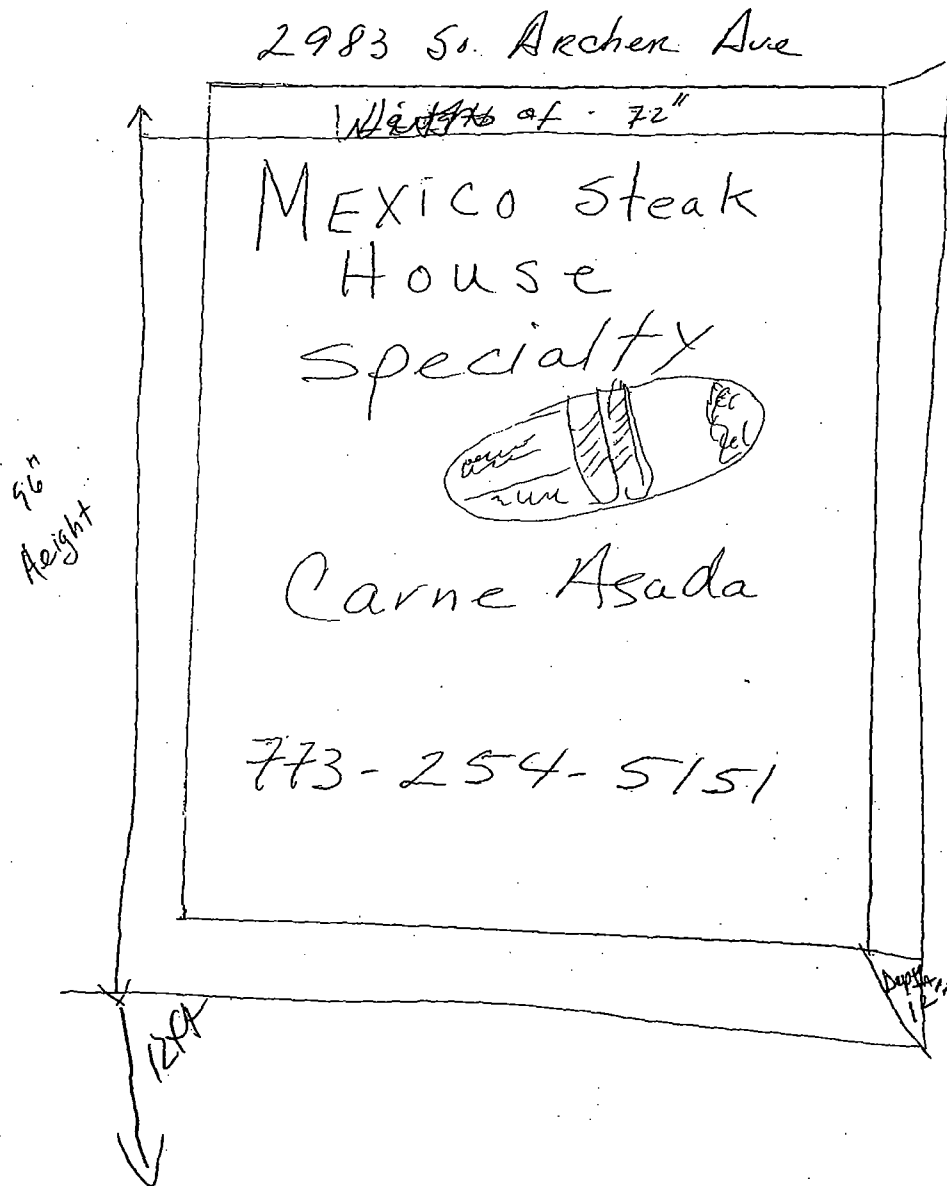 2983 So. Archer Ave
Width of 72"
MEXICO Steak
House
Specialty
Carne Asada
773-254-5151
96"
Height
12ft
Depth
12"